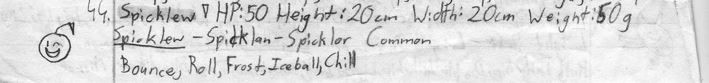 44. Spicklew ∇ HP:50 Height:20cm Width:20cm Weight:50g
Spicklew-Spicklan-Spicklor Common
Bounce, Roll, Frost, Iceball, Chill